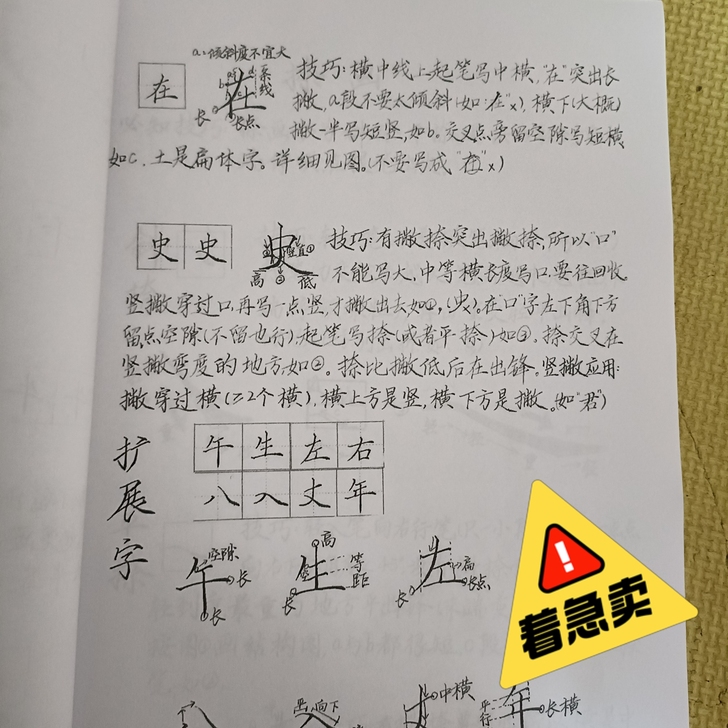 a.倾斜度不宜大
在
技巧:横中线上起笔写中横,"在"突出长
撇,a段不要太倾斜(如:"在"x),横下(大概)
撇一半写短竖,如b.交叉点旁留空隙写短横,
如c.土是扁体字。详细见图。(不要写成"在"x)
长 长点
史 史
技巧:有撇捺突出撇捺,所以"口"
不能写大,中等横长度写口,要往回收
高 低
竖撇穿过口,再写一点竖,才撇出去如①,(史x)。在"口"字左下角下方
留点空隙(不留也行),起笔写捺(或者平捺)如③.捺交叉在
竖撇弯度的地方如②。捺比撇低后在出锋。竖撇应用:
撇穿过横(≥2个横),横上方是竖,横下方是撇。(如"君")
扩展字
午 生 左 右
八 入 丈 年
午 空隙 长 长
生 高 等距 长
左 高 长点 长
着急卖
向下
中横
平行 长横